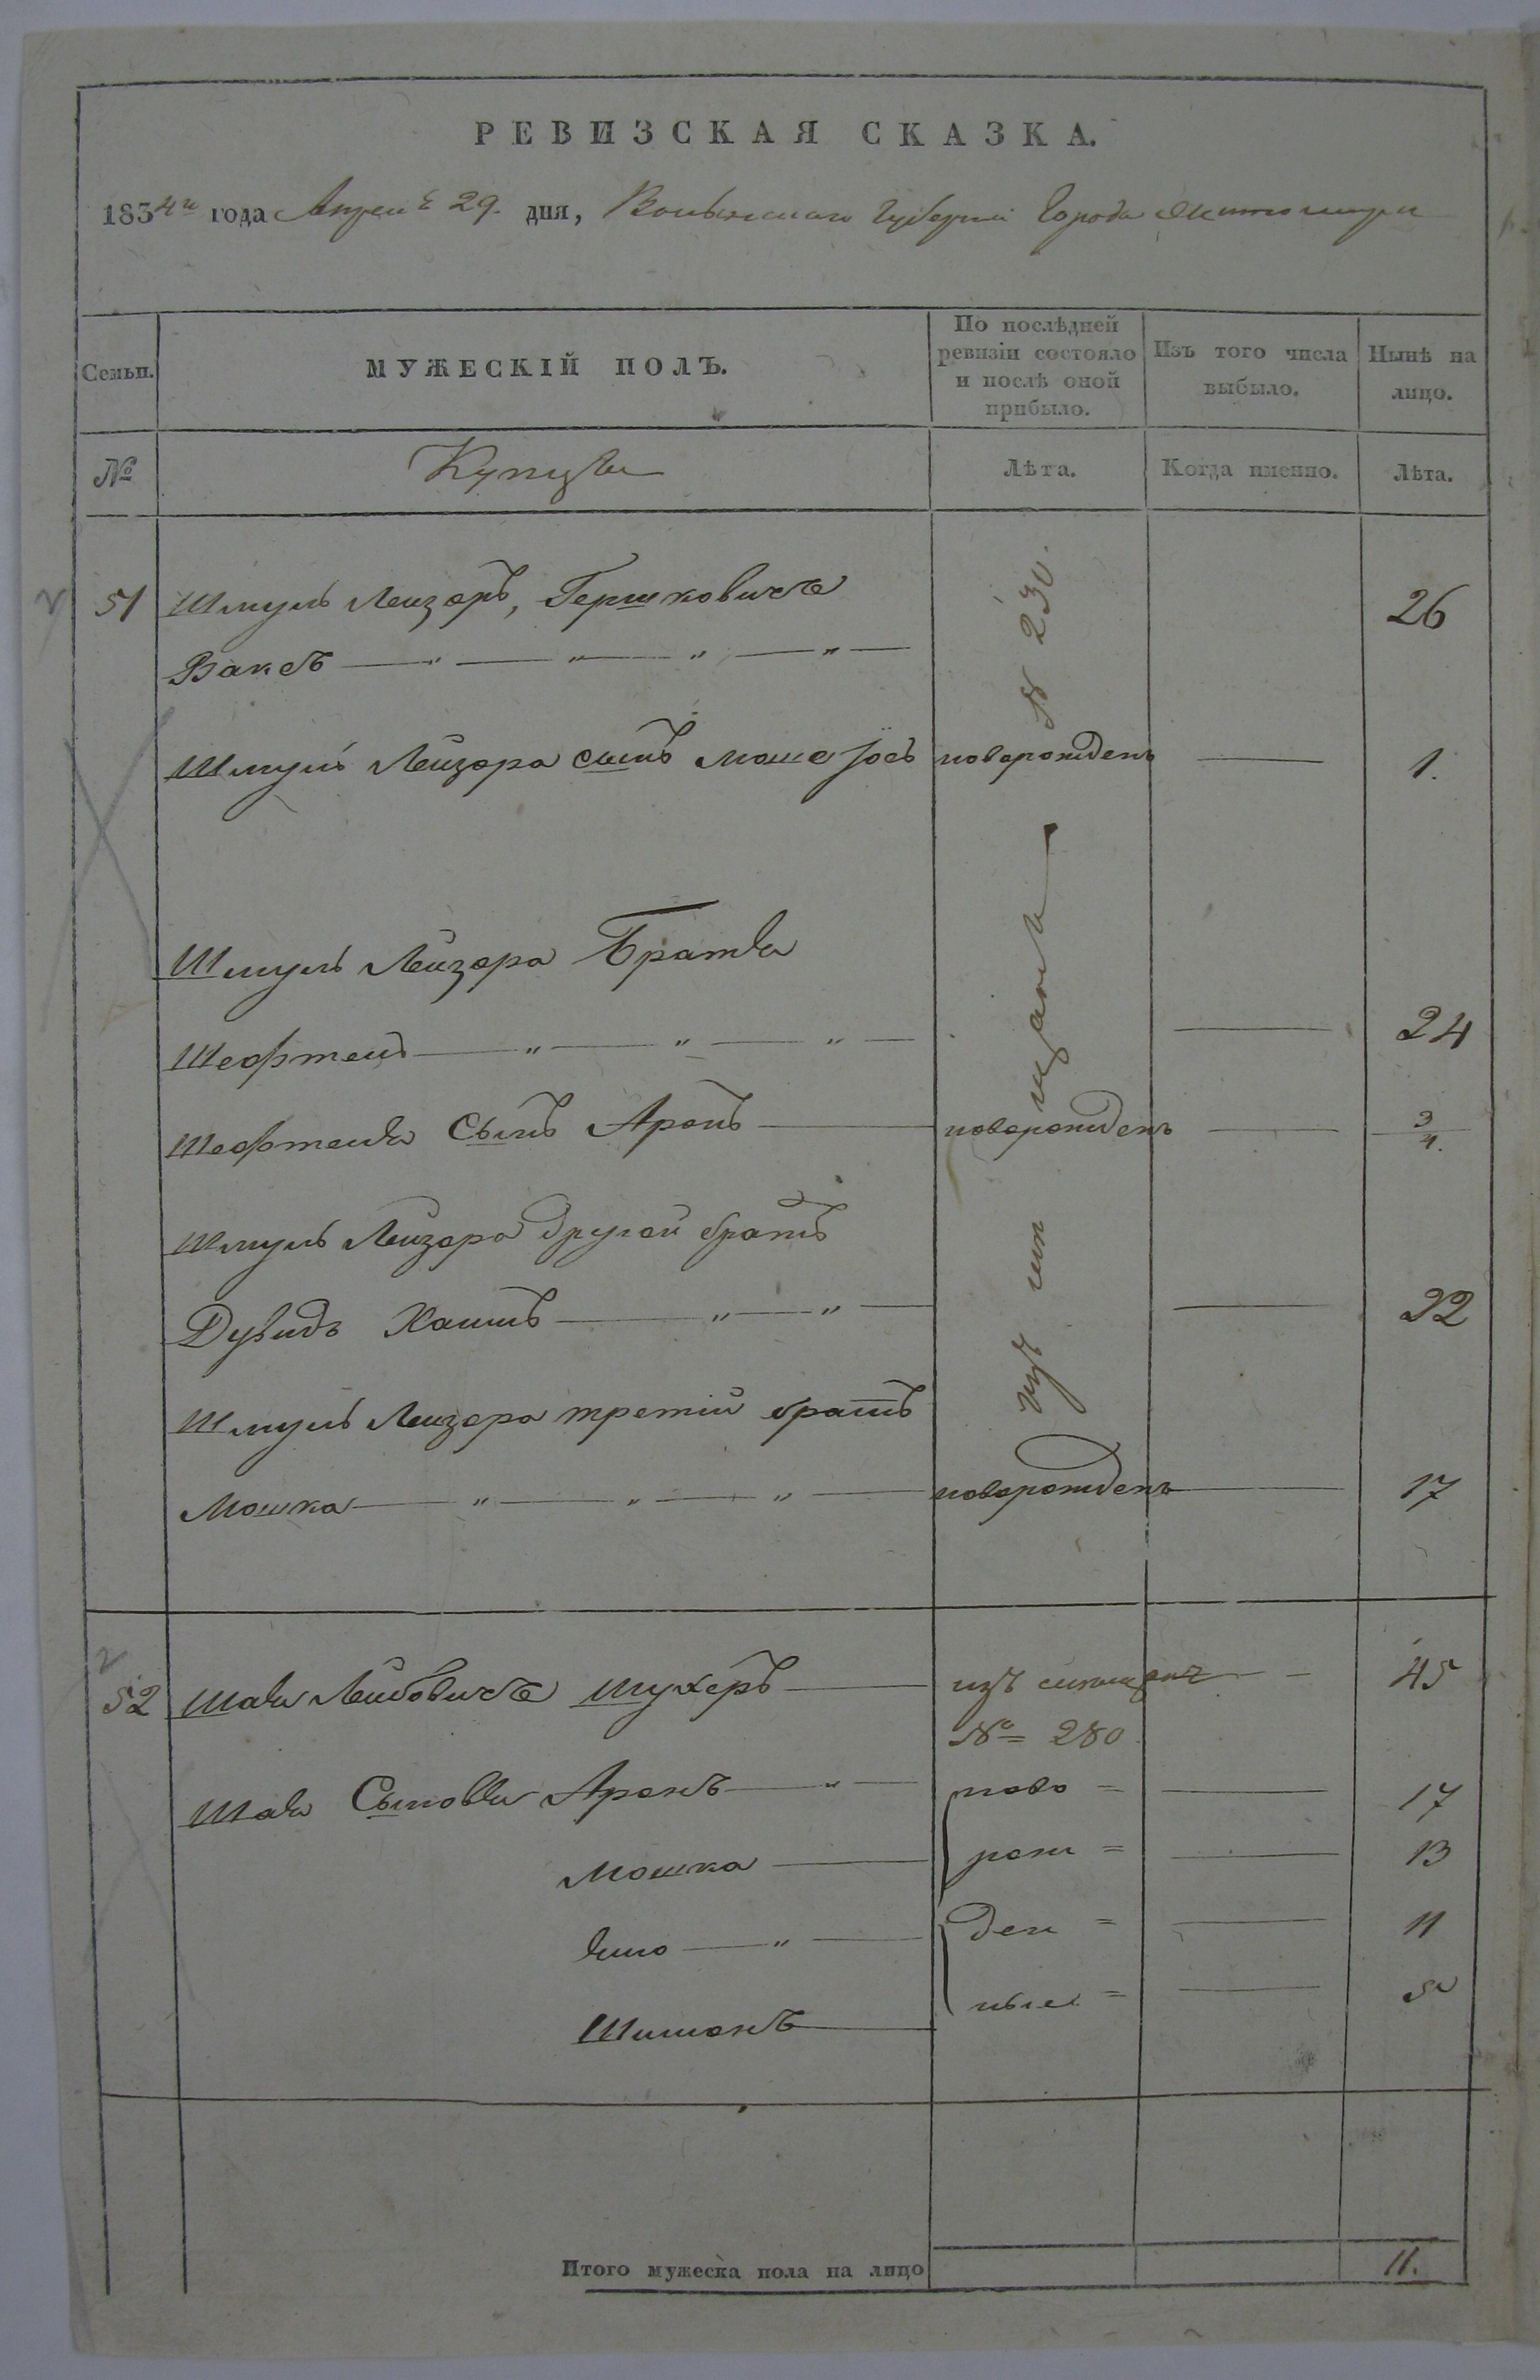 РЕВИЗСКАЯ СКАЗКА.
1834го года Апреля 29. дня, Волынской Губернии Города Житомира
Семьи. МУЖЕСКІЙ ПОЛЪ. По послѣдней ревизіи состояло и послѣ оной прибыло. Изъ того числа выбыло. Нынѣ на лицо.
№ Купцы Лѣта. Когда именно. Лѣта.
51 Шмуль Лейзеръ, Гершковичъ 26
Ваксъ — " — " — " — " —
№ 230.
Шмуль Лейзера сынъ Моше Іосъ новорожденъ — 1.
Шмуль Лейзера Братья
Шефтель — " — " — " — — 24
Шефтеля Сынъ Аронъ — новорожденъ — 3/4.
Шмуль Лейзера другой братъ
Дувидъ Хаимъ — " — " — — 22
изъ мещанъ
Шмуль Лейзера третій братъ
Мошка — " — " — " — новорожденъ — 17
52 Шая Лейбовичъ Шухеръ — изъ мещанъ — 45
№ 280
Шаи Сыновья Аронъ — " — ново = — 17
Мошка — рож = — 13
— " — ден = — 11
Шимонъ — ные = — 5
Итого мужеска пола на лицо 11.